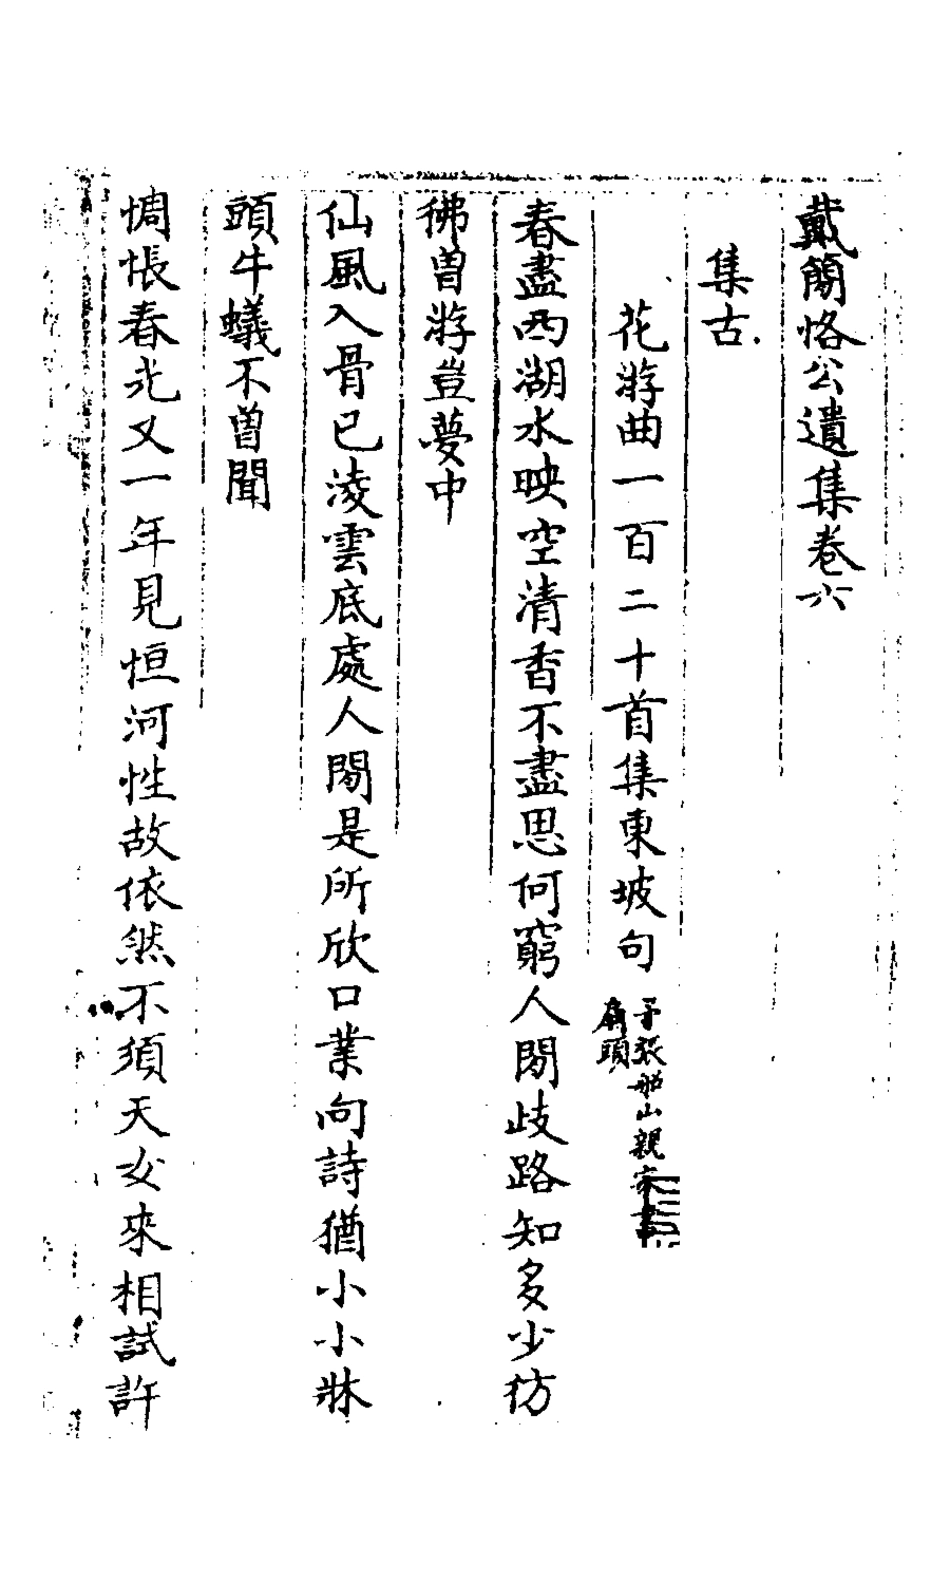 戴簡恪公遺集卷六
集古
花游曲一百二十首集東坡句
予張船山親家書
扇頭
春盡西湖水映空清香不盡思何窮人閒歧路知多少彷
彿曽游豈夢中
仙風入骨已淩雲底處人閒是所欣口業向詩猶小小牀
頭牛蟻不曽聞
惆悵春光又一年見恒河性故依然不須天女來相試許